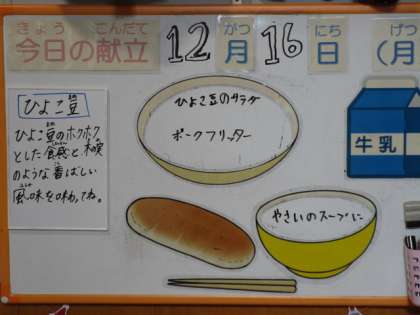 きょう こんだて がつ にち げつ
今日の献立 12月16日(月
ひよこ豆
ひよこ豆のホクホク
とした食感と、木の実
のような香ばしい
風味を味わってね。
ひよこ豆のサラダ
ポークフリッター
牛乳
やさいのスープに